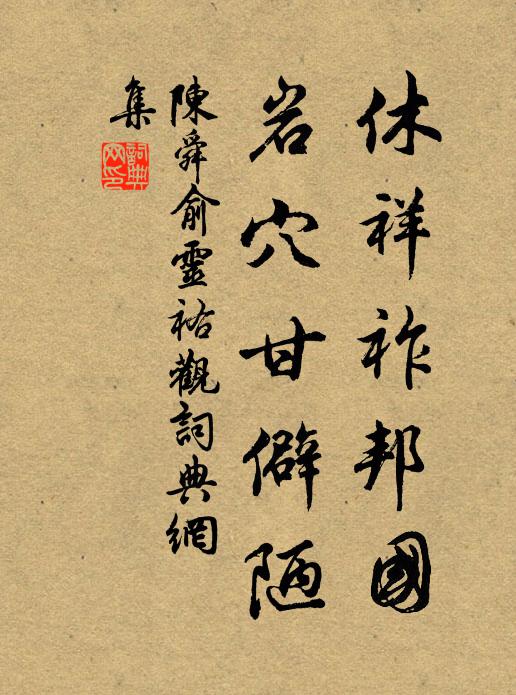 休祥祚邦國
岩穴甘僻陋
陳舜俞靈祐觀詞典網
集
詞典网印